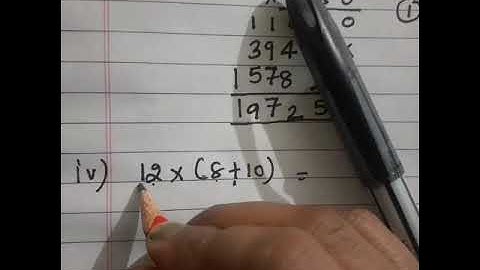 ①
394
1578
1972
iv) 12 × (8+10) =